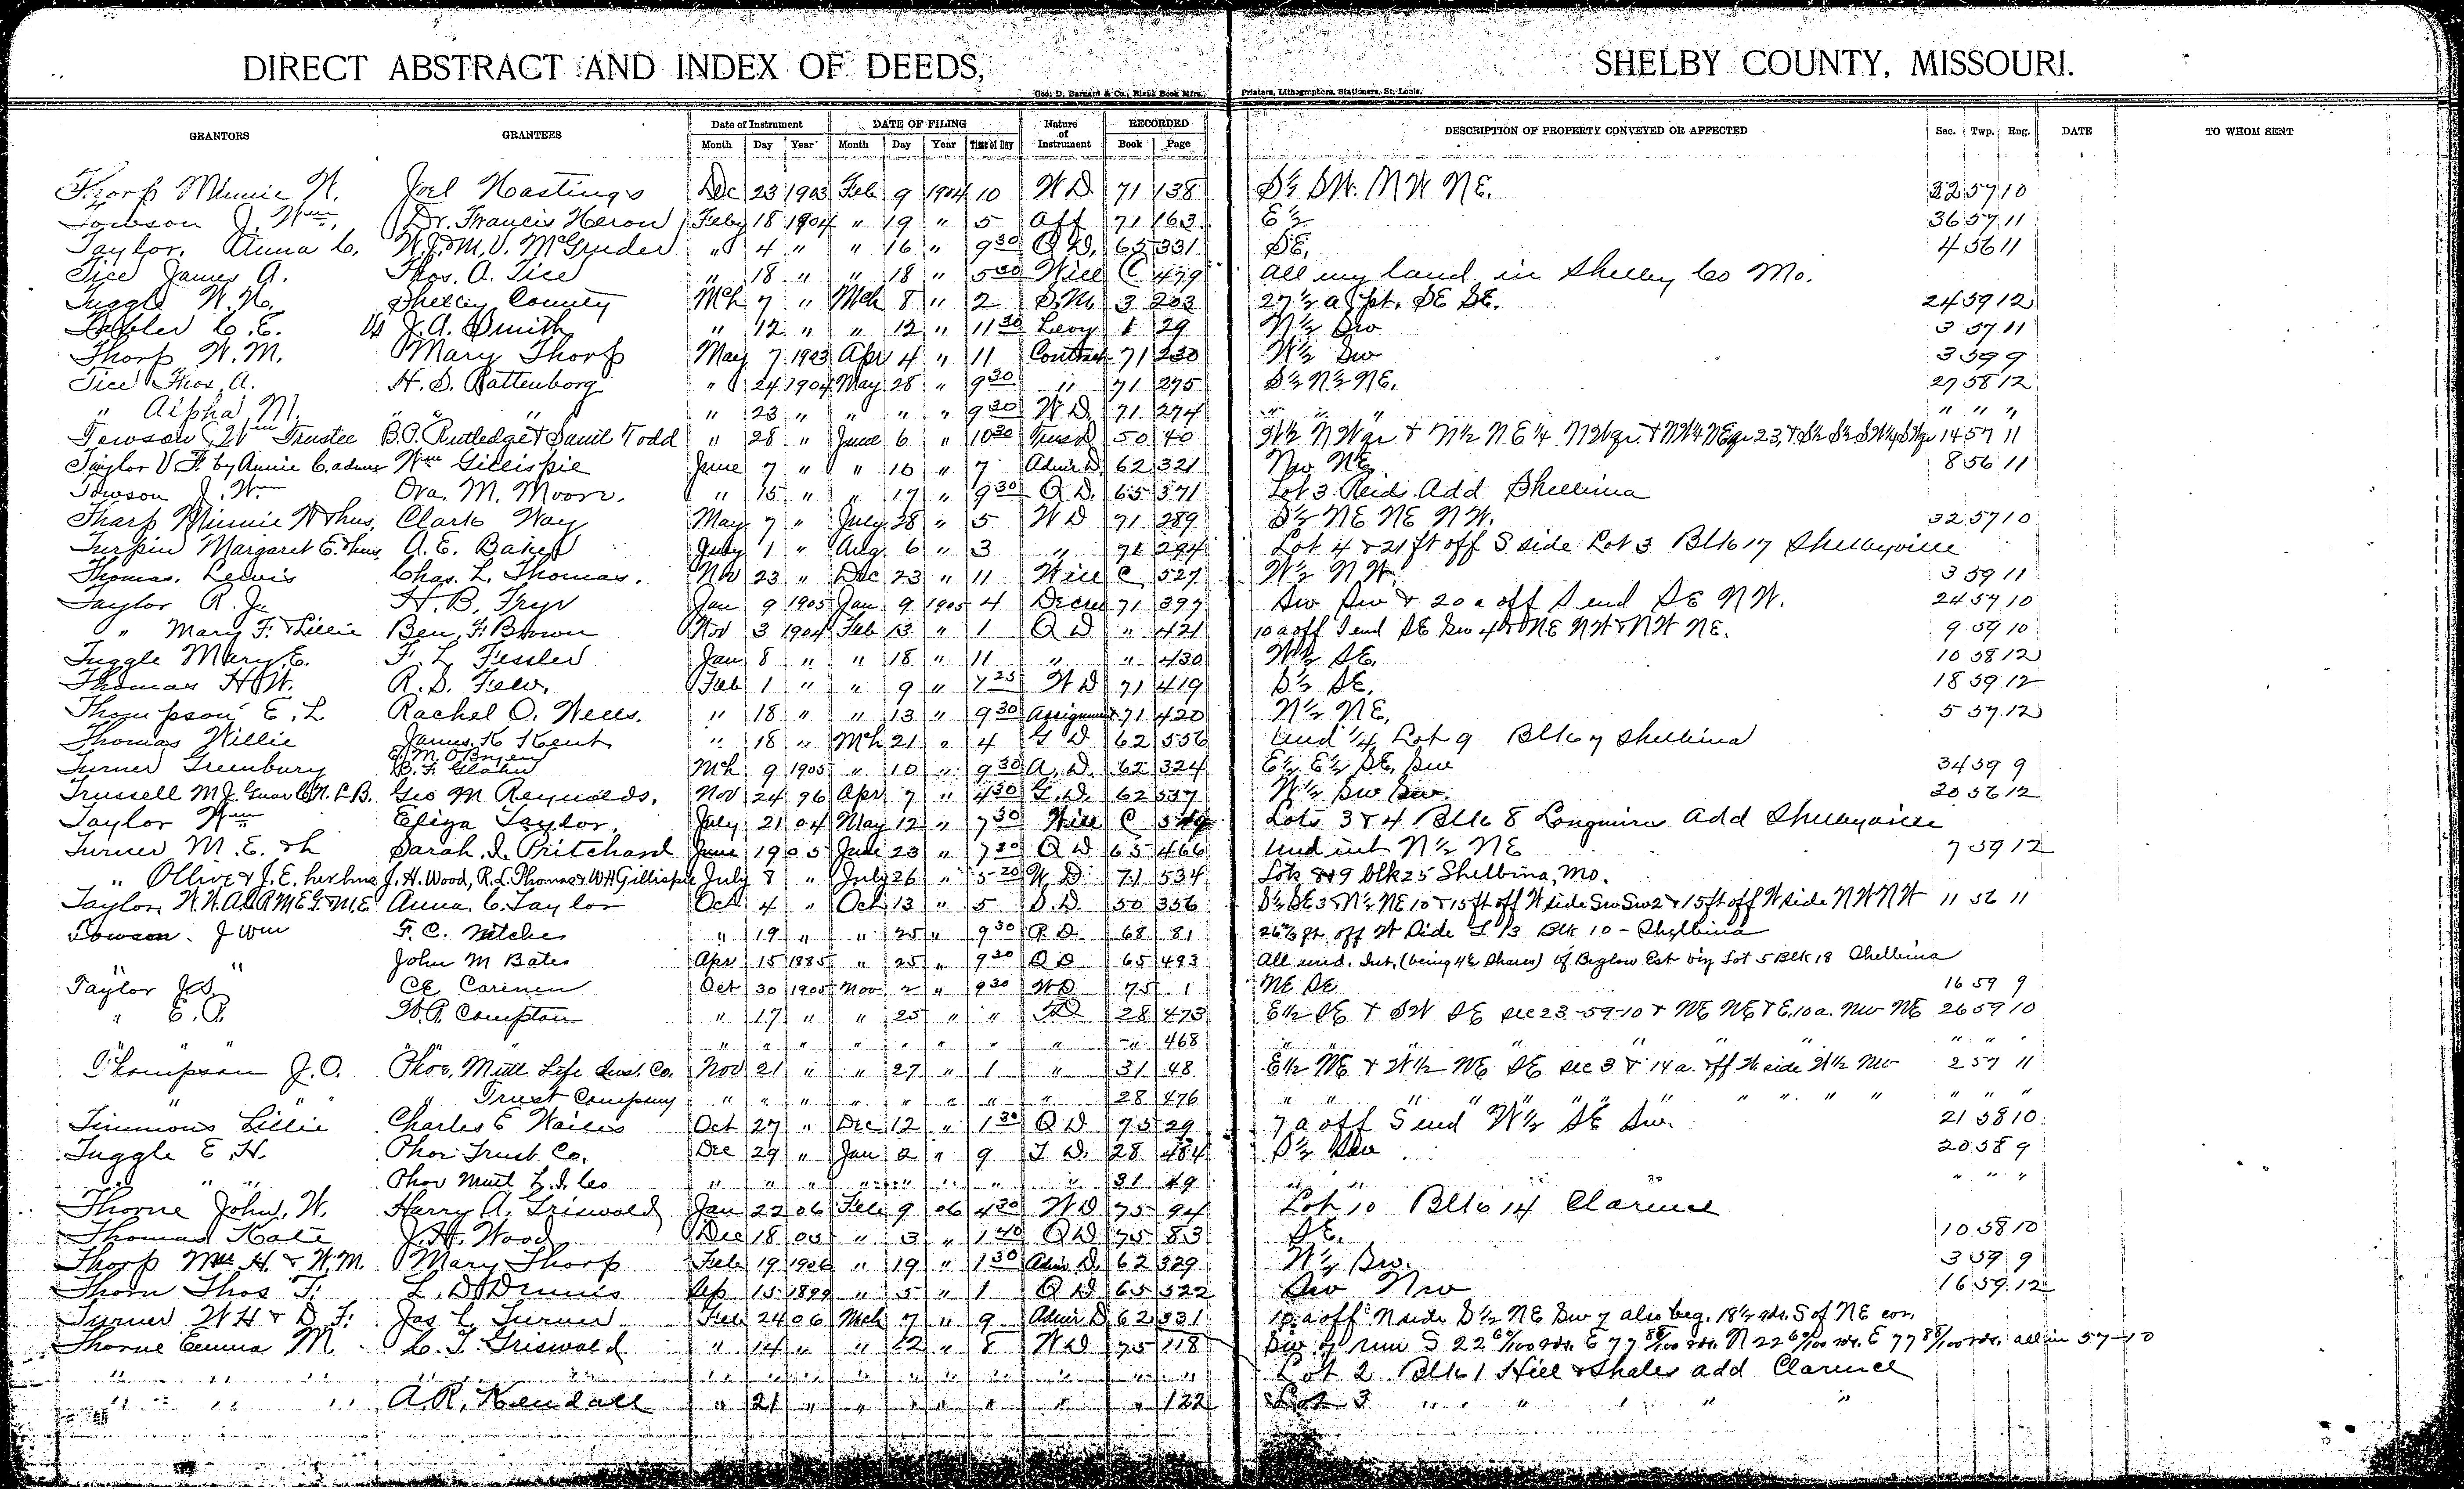 DIRECT ABSTRACT AND INDEX OF DEEDS, SHELBY COUNTY, MISSOURI.
Geo. D. Barnard & Co., Blank Book Mfrs., Printers, Lithographers, Stationers, St. Louis.
GRANTORS GRANTEES Date of Instrument DATE OF FILING Nature of Instrument RECORDED DESCRIPTION OF PROPERTY CONVEYED OR AFFECTED Sec. Twp. Rng. DATE TO WHOM SENT
Month Day Year Month Day Year Time of Day Book Page
Thorp Minnie N. Joel Hastings Dec 23 1903 Feb 9 1904 10 W D 71 138 S½ SW. NW NE. 32 57 10
Towson J. Wm. Dr. Francis Heron Feby 18 1904 " 19 " 5 Aff 71 163 E½ 36 57 11
Taylor, Anna C. W.J. & M.V. McGruder " 4 " " 16 " 9 30 Q D. 65 331 SE. 4 56 11
Tice James A. Thos. A. Tice " 18 " " 18 " 5 30 Will C 479 all my land in Shelby Co Mo.
Tuggle W. N. Shelby County Mch 7 " Mch 8 " 2 S. M. 3 203 27½ a pt. SE SE. 24 59 12
C. E. vs J. A. Smith " 12 " " 12 " 11 30 Levy 1 29 N½ Sw 3 57 11
Thorp W. M. Mary Thorp May 7 1903 Apr 4 " 11 Contract 71 230 W½ Sw 3 59 9
Tice Thos. A. H. S. Rattenborg " 24 1904 May 28 " 9 30 " 71 275 S½ N½ NE. 27 58 12
" Alpha M. " " " " 23 " " " " 9 30 W D. 71 274 " " " " " "
Towson J Wm Trustee B. P. Rutledge & Saml Todd " 28 " June 6 " 10 30 Trus D 50 40 W½ NW qr & N½ NE¼ NW qr. & NW¼ NE qr 23, & S½ S½ SW¼ SW qr 14 57 11
Taylor V F. by Annie C. admx Wm Gillispie June 7 " " 10 " 7 Admr D 62 321 Nw NE. 8 56 11
Towson J. Wm Ora. M. Moore. " 15 " " 17 " 9 30 Q D. 65 371 Lot 3 Reids Add Shelbina
Tharp Minnie N & hus, Clark Way May 7 " July 28 " 5 W D 71 289 S½ NE NE NW. 32 57 10
Turpin Margaret E. & hus, A. E. Baker July 1 " Aug. 6 " 3 " 71 294 Lot 4 & 21 ft off S side Lot 3 Blk 17 Shelbyville
Thomas. Lewis Chas. L. Thomas. Nov 23 " Dec 23 " 11 Will C 527 W½ NW. 3 59 11
Taylor R. J. H. B. Frye Jan 9 1905 Jan 9 1905 4 Decree 71 397 Sw Sw & 20 a off S end SE NW. 24 57 10
" Mary F. & Lillie Ben. F. Brown Nov 3 1904 Feb 13 " 1 Q D " 421 10 a off S end SE Sw 4 & NE NW & NW NE. 9 59 10
Tuggle Mary E. F. L. Fessler Jan 8 " " 18 " 11 " " 430 W½ SE. 10 58 12
Thomas H W. R. S. Feb 1 " " 9 " 7 25 W D 71 419 S½ SE. 18 59 12
Thompson E. L Rachel O. Wells. " 18 " " 13 " 9 30 Assignment 71 420 N½ NE. 5 57 12
Thomas Willie James. K Kent " 18 " Mch 21 " 4 G D 62 556 Und ¼ Lot 9 Blk 7 Shelbina
Turner Greenbury E. M. O'Bryen B. F. Glahn Mch 9 1905 " 10 " 9 30 A. D. 62 324 E½ E½ SE. Sw 34 59 9
Trussell M J. Guar Geo M Reynolds. Nov 24 96 Apr 7 " 4 30 G. D. 62 557 W½ Sw Sw. 20 56 12
Taylor Wm Eliza Taylor. July 21 04 May 12 " 7 30 Will C 549 Lots 3 & 4 Blk 8 Longmire Add Shelbyville
Turner M. E. & h Sarah. I. Pritchard June 19 05 June 23 " 7 30 Q D 65 466 und int N½ NE 7 59 12
" Ollive & J. E. her hus J. H. Wood, R. L. Thomas & WH Gillispie July 8 " July 26 " 5 20 W. D. 71 534 Lots 8&9 blk 25 Shelbina, Mo.
Taylor, Anna. C. Taylor Oct 4 " Oct 13 " 5 D. D. 50 356 S½ SE 3 & N½ NE 10 & 15 ft off W side Sw Sw 2 & 15 ft off W side NW NW 11 56 11
Towson. J Wm F. C. " 19 " " 25 " 9 30 Q. D. 68 81 26⅔ ft. off W Side L 13 Blk 10 - Shelbina
" " John M Bates Apr 15 1885 " 25 " 9 30 Q D 65 493 All und. Int. (being 4½ Shares) of Biglow Est viz Lot 5 Blk 18 Shelbina
Taylor J.S. CE Carinen Oct 30 1905 Nov 2 " 9 30 W D 75 1 NE SE 16 59 9
" E. R. W. P. Compton " 17 " " 25 " " T D 28 473 E½ SE & SW SE sec 23-59-10 & NE NE & E. 10 a. Nw NE 26 59 10
" " " " " " " " " " " " " " 468 " " " " " " "
Thompson J. O. Phoe. Mutl Life Insr. Co. Nov 21 " " 27 " 1 " 31 48 E½ NE & W½ NE SE sec 3 & 14 a. off W side W½ Nw 2 57 11
" " " " Trust Company " " " " " " " " 28 476 " " " " " " " " " " " " "
Timmons Lillie Charles E Oct 27 " Dec 12 " 1 30 Q D 75 29 7 a off S end W½ SE Sw. 21 58 10
Tuggle E. H. Phoe Trust Co. Dec 29 " Jan 2 " 9 T D. 28 484 S½ 20 58 9
" " " Phoe Mutl L. I. Co " " " " " " " " 31 49 " " " " " "
Thorne John. W. Harry A. Griswold Jan 22 06 Feb 9 06 4 30 W D 75 94 Lot 10 Blk 14 Clarence
Thomas Kate J. H. Wood Dec 18 05 " 3 " 1 40 Q D 75 83 SE. 10 58 10
Thorp H. & W. M. Mary Thorp Feb 19 1906 " 19 " 1 30 Adm D. 62 329 W½ Sw. 3 59 9
Thorn Thos F. L. D. Dennis Sep 15 1899 " 5 " 1 Q D 65 522 Sw Nw 16 59 12
Turner W H & D F. Jas L Turner Feb 24 06 Mch 7 " 9 Admr D 62 331 10 a off N side S½ NE Sw 7 also beg. 18½ rds. S of NE cor,
Thorne Emma M. C. T. Griswold " 14 " " 22 " 8 W D 75 118 Sw 7 run S 22 60/100 rds. E 77 88/100 rds. N 22 60/100 rds. E 77 88/100 rds. all in 57-10
" " " " " " " " " " " " " " " Lot 2 Blk 1 Hill & Shales add Clarence
" " " " A. R. Kendall " 21 " " " " " " " 122 Lot 3 " " " " "